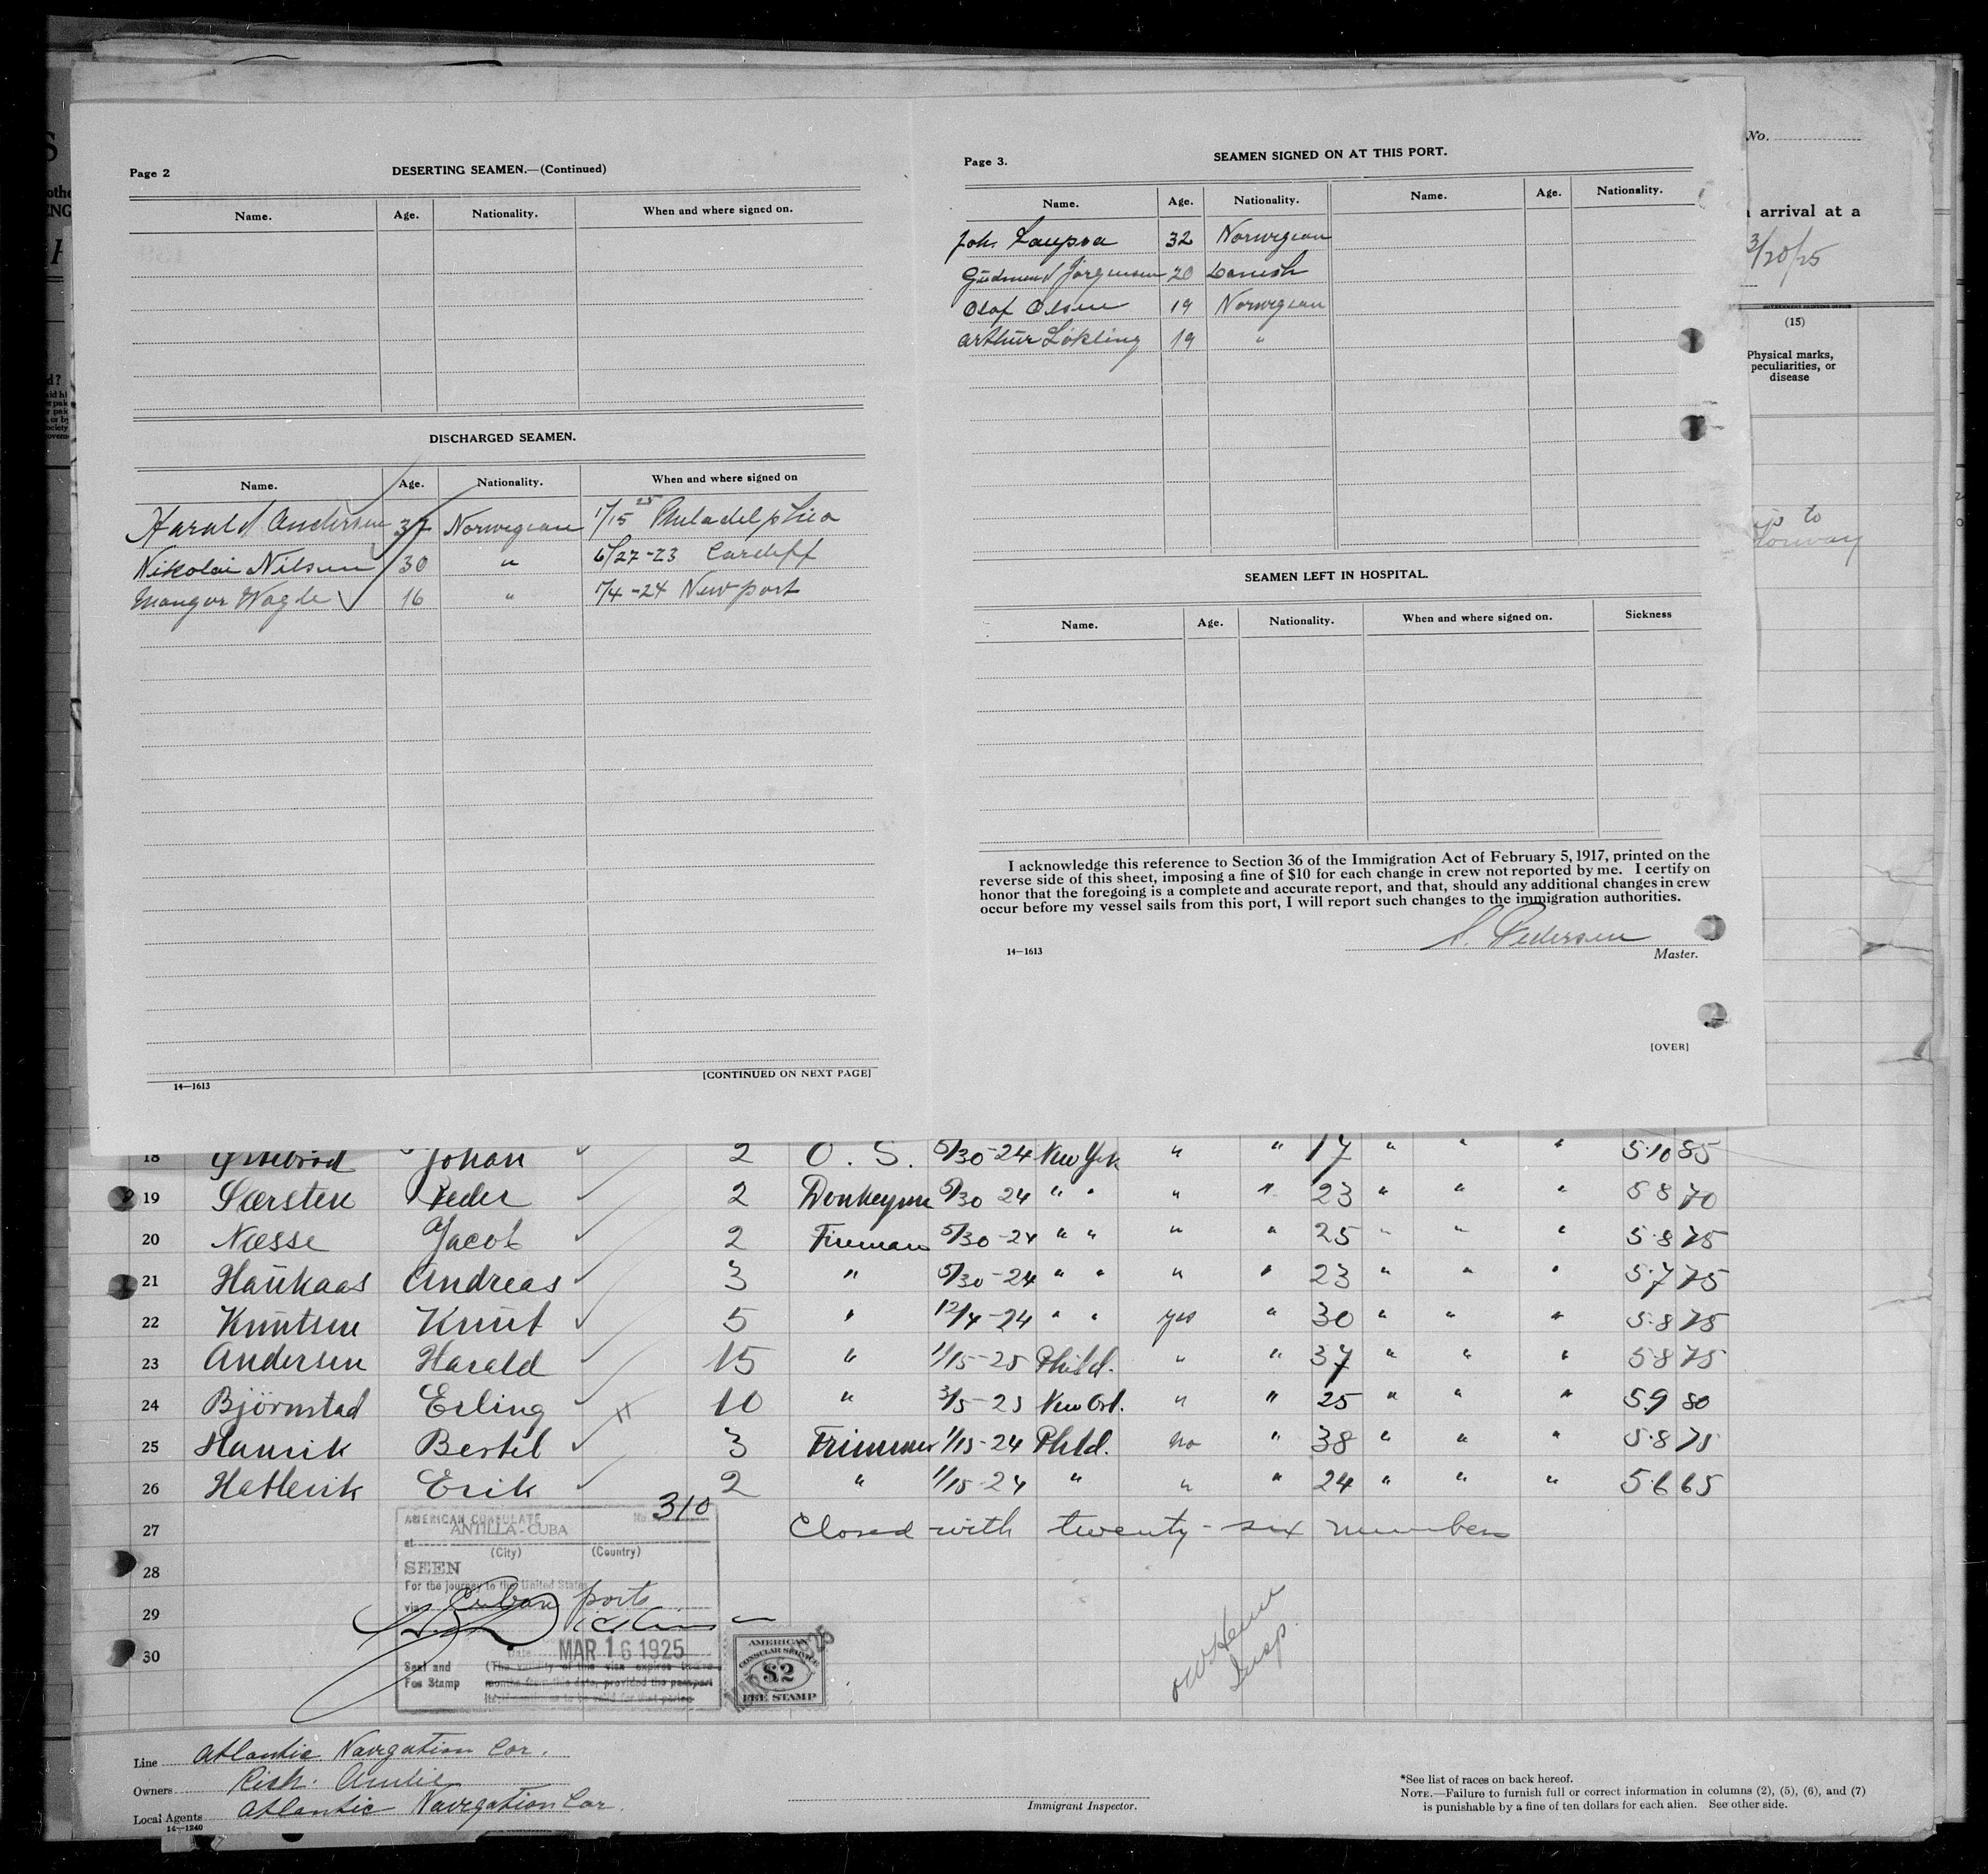 No.
arrival at a
3/20/25
(15)
Physical marks,
peculiarities, or
disease
to
Page 2
DESERTING SEAMEN.—(Continued)
Name. Age. Nationality. When and where signed on.
DISCHARGED SEAMEN.
Name. Age. Nationality. When and where signed on
Harald Andersen 37 Norwegian 1/15 25 Philadelphia
Nikolai Nilsen 30 " 6/27-23 Cardiff
Mangor Wagle 16 " 1/4-24 Newport
14—1613
[CONTINUED ON NEXT PAGE]
Page 3.
SEAMEN SIGNED ON AT THIS PORT.
Name. Age. Nationality. Name. Age. Nationality.
Joh. 32 Norwegian
Gudmund Jörgensen 20 Danish
Olaf Olsen 19 Norwegian
Arthur Lökling 19 "
SEAMEN LEFT IN HOSPITAL.
Name. Age. Nationality. When and where signed on. Sickness
I acknowledge this reference to Section 36 of the Immigration Act of February 5, 1917, printed on the
reverse side of this sheet, imposing a fine of $10 for each change in crew not reported by me. I certify on
honor that the foregoing is a complete and accurate report, and that, should any additional changes in crew
occur before my vessel sails from this port, I will report such changes to the immigration authorities.
Pedersen
14—1613
Master.
[OVER]
18 Johan 2 O. S. 5/30-24 New York " " 17 " " " 5.10 85
19 Særsten Peder 2 Donkeyman 5/30 24 " " " " 23 " " " 5 8 70
20 Næsse Jacob 2 Fireman 5/30-24 " " " " 25 " " " 5.8 75
21 Haukaas Andreas 3 " 5/30-24 " " " " 23 " " " 5.7 75
22 Knutsen Knut 5 " 12/4-24 " " yes " 30 " " " 5.8 75
23 Andersen Harald 15 " 1/15-25 Phild. " " 37 " " " 5.8 75
24 Björnstad Erling 10 " 3/5-25 New Orl. " " 25 " " " 5.9 80
25 Hamrik Bertel 3 Trimmer 1/15-24 Phld. no " 38 " " " 5.8 75
26 Hetlevik Erik 2 " 1/15-24 " " " 24 " " " 5.6 65
27 Closed with twenty-six members
28
29
30
AMERICAN CONSULATE No. 310
at ANTILLA-CUBA
(City) (Country)
SEEN
For the journey to the United States
via Cuban ports
Date MAR 16 1925
Seal and
Fee Stamp
(The validity of this visa expires
months from this date, provided the passport
AMERICAN
CONSULAR SERVICE
$2
FEE STAMP
Insp.
Line Atlantic Navigation Cor.
Owners Rich. Amlie
Local Agents Atlantic Navigation Cor.
14—1240
Immigrant Inspector.
*See list of races on back hereof.
NOTE.—Failure to furnish full or correct information in columns (2), (5), (6), and (7)
is punishable by a fine of ten dollars for each alien. See other side.